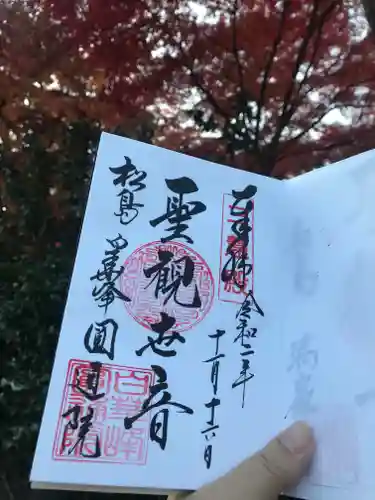 奉拝 令和二年
十一月十六日
聖観世音
松島 白華峰 圓通院